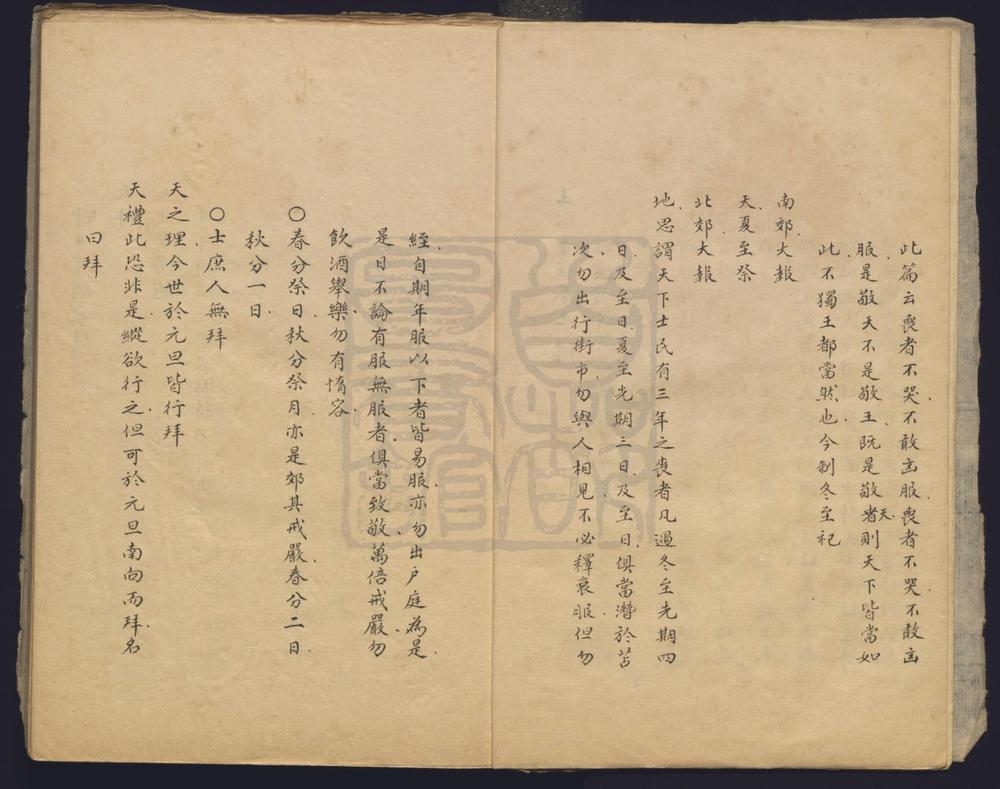 此篇云喪者不哭不敢凶服喪者不哭不敢凶
服是敬天不是敬王既是敬天者則天下皆當如
此不獨王都當然也今制冬至祀
南郊大報
天夏至祭
北郊大報
地思謂天下士民有三年之喪者凡遇冬至先期四
日及至日夏至先期三日及至日俱當潛於苫
次勿出行街市勿與人相見不必釋衰服但勿
絰自期年服以下者皆易服亦勿出戶庭為是
是日不論有服無服者俱當致敬萬倍戒嚴勿
飲酒舉樂勿有惰容
○春分祭日秋分祭月亦是郊其戒嚴春分二日
秋分一日
○士庶人無拜
天之理今世於元旦皆行拜
天禮此恐非是縱欲行之但可於元旦南向而拜名
曰拜